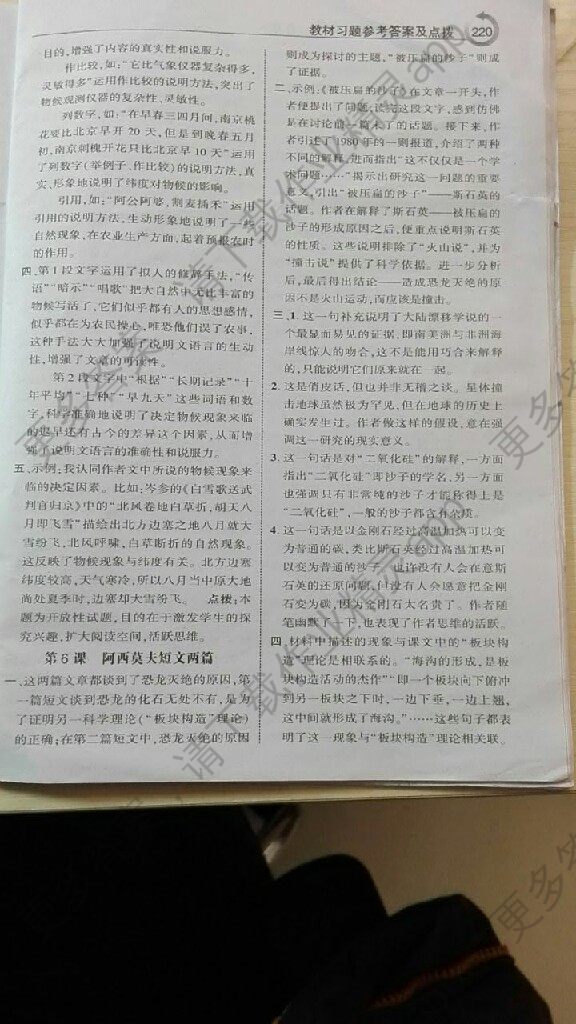 教材习题参考答案及点拨 220
目的,增强了内容的真实性和说服力。
作比较,如:“它比气象仪器复杂得多,
灵敏得多”运用作比较的说明方法,突出了
物候观测仪器的复杂性、灵敏性。
列数字,如:“在早春三四月间,南京桃
花要比北京早开 20 天,但是到晚春五月
初,南京刺槐开花只比北京早 10 天”运用
了列数字(举例子、作比较)的说明方法,真
实、形象地说明了纬度对物候的影响。
引用,如:“阿公阿婆,割麦插禾”运用
引用的说明方法,生动形象地说明了一些
自然现象,在农业生产方面,起着预报农时
的作用。
四、第 1 段文字运用了拟人的修辞手法,“传
语”“暗示”“唱歌”把大自然中无比丰富的
物候写活了,它们似乎都有人的思想感情,
似乎都在为农民操心,唯恐他们误了农事,
这种手法大大加强了说明文语言的生动
性,增强了文章的可读性。
第 2 段文字中“根据”“长期记录”“十
年平均”“七种”“早九天”这些词语和数
字,科学准确地说明了决定物候现象来临
的迟早还有古今的差异这个因素,从而增
强了说明文语言的准确性和说服力。
五、示例:我认同作者文中所说的物候现象来
临的决定因素。比如:岑参的《白雪歌送武
判官归京》中的“北风卷地白草折,胡天八
月即飞雪”描绘出北方边塞之地八月就大
雪纷飞,北风呼啸,白草断折的自然现象。
这反映了物候现象与纬度有关。北方边塞
纬度较高,天气寒冷,所以八月当中原大地
尚处夏季时,边塞却大雪纷飞。 点拨:本
题为开放性试题,目的在于激发学生的探
究兴趣,扩大阅读空间,活跃思维。
第 6 课 阿西莫夫短文两篇
一、这两篇文章都谈到了恐龙灭绝的原因,第
一篇短文谈到恐龙的化石无处不有,是为
了证明另一科学理论(“板块构造”理论)
的正确;在第二篇短文中,恐龙灭绝的原因
则成为探讨的主题,“被压扁的沙子”则成
了证据。
二、示例:《被压扁的沙子》在文章一开头,作
者便提出了问题,读完这段文字,感到仿佛
是在讨论前一篇未了的话题。接下来,作
者引述了 1980 年的一则报道,介绍了两种
不同的解释,进而指出“这不仅仅是一个学
术问题……”揭示出研究这一问题的重要
意义,引出“被压扁的沙子”——斯石英的
话题。作者在解释了斯石英——被压扁的
沙子的形成原因之后,便重点说明斯石英
的性质。这些说明排除了“火山说”,并为
“撞击说”提供了科学依据。进一步分析
后,最后得出结论——造成恐龙灭绝的原
因不是火山运动,而应该是撞击。
三、1. 这一句补充说明了大陆漂移学说的一
个最显而易见的证据,即南美洲与非洲海
岸线惊人的吻合,这不是能用巧合来解释
的,只能说明它们原来就在一起。
2. 这是俏皮话,但也并非无稽之谈。星体撞
击地球虽然极为罕见,但在地球的历史上
确实发生过。作者做这样的假设,意在强
调这一研究的现实意义。
3. 这一句话是对“二氧化硅”的解释,一方面
指出“二氧化硅”即沙子的学名,另一方面
也强调只有非常纯的沙子才能称得上是
“二氧化硅”,一般的沙子都含有杂质。
4. 这一句话是以金刚石经过高温加热可以变
为普通的碳,类比斯石英经过高温加热可
以变为普通的沙子。也许没有人会在意斯
石英的还原问题,但没有人会愿意把金刚
石变为碳,因为金刚石太名贵了。作者随
笔幽默了一下,也表现了作者思维的活跃。
四、材料中描述的现象与课文中的“板块构
造”理论是相联系的。“海沟的形成,是板
块构造活动的杰作”“即一个板块向下俯冲
到另一板块之下时,一边下垂,一边上翘,
这中间就形成了海沟。”……这些句子都表
明了这一现象与“板块构造”理论相关联。